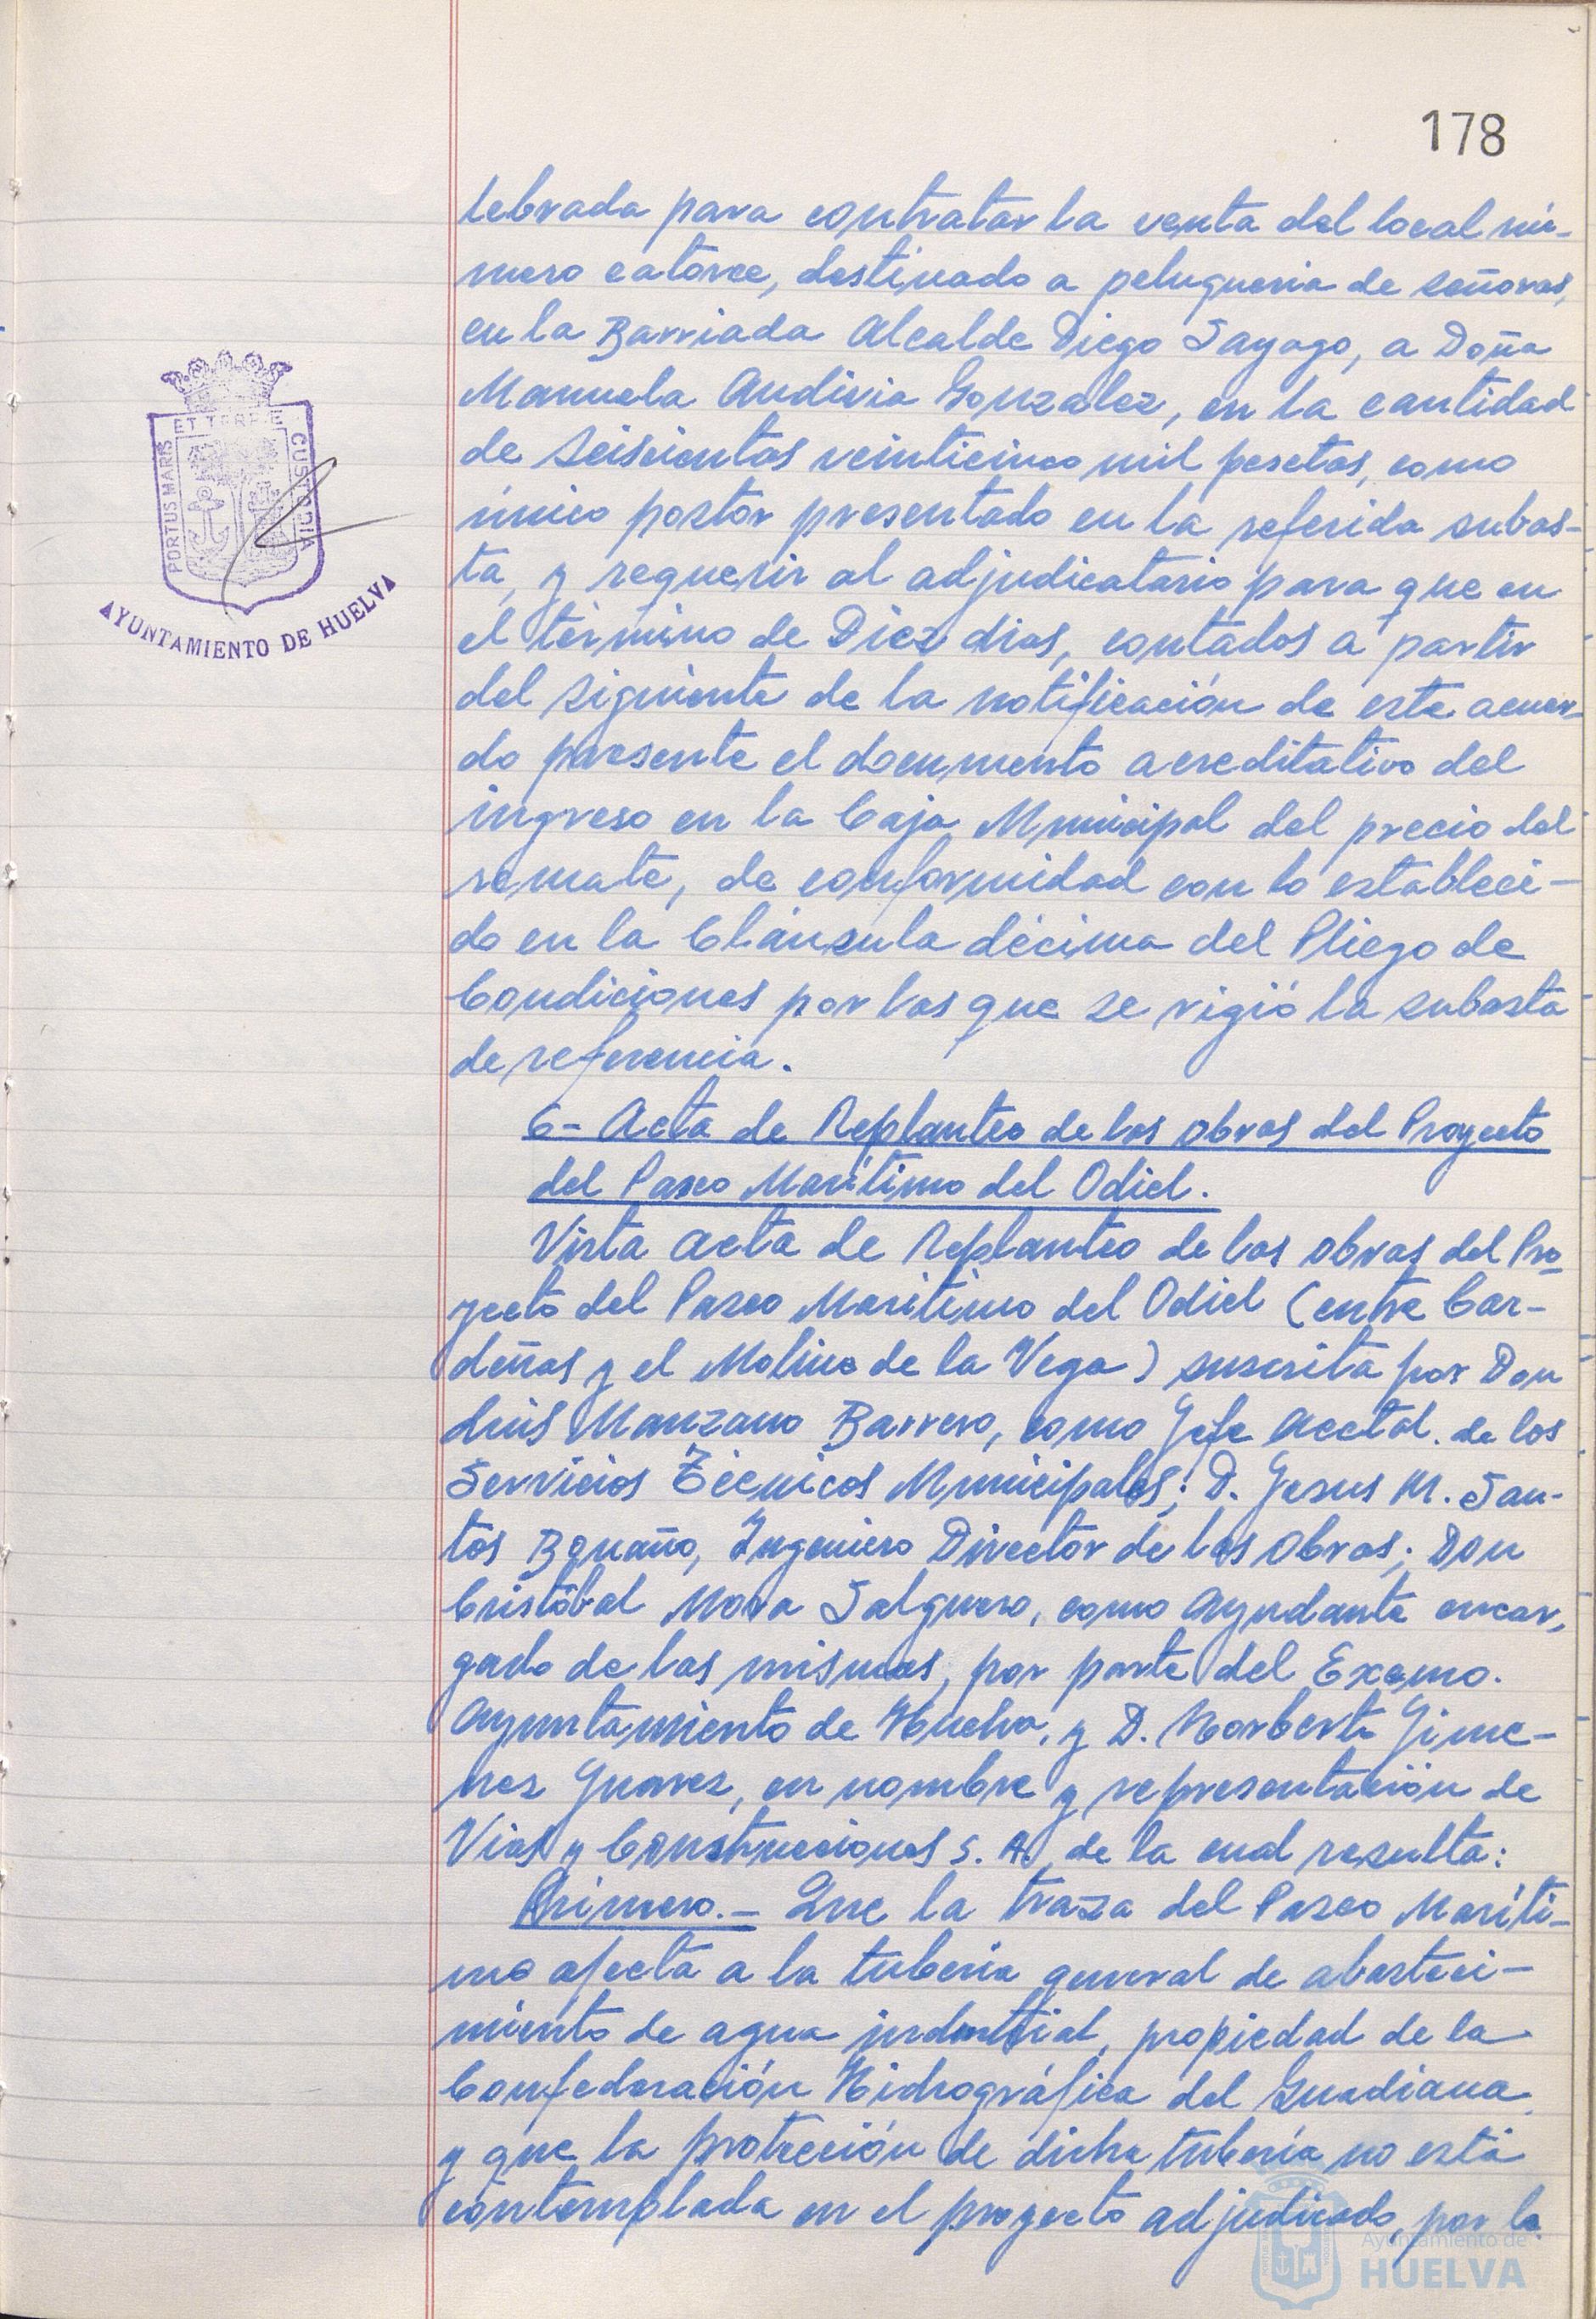 178
lebrada para contratar la venta del local nú-
mero catorce, destinado a peluqueria de señoras,
en la Barriada Alcalde Diego Sayago, a Doña
Manuela Audivia Gonzalez, en la cantidad
de Seiscientas veinticinco mil pesetas, como
único postor presentado en la referida subas-
ta, y requerir al adjudicatario para que en
el término de Diez dias, contados a partir
del siguiente de la notificación de este acuer-
do presente el documento acreditativo del
ingreso en la Caja Municipal del precio del
remate, de conformidad con lo estableci-
do en la Cláusula décima del Pliego de
Condiciones por las que se rigió la subasta
de referencia.
6- Acta de Replanteo de las obras del Proyecto
del Paseo Marítimo del Odiel.
Vista acta de Replanteo de las obras del Pro-
yecto del Paseo Maritimo del Odiel (entre Car-
deñas y el Molino de la Vega) suscrita por Don
Luis Manzano Barrero, como Jefe acctal. de los
Servicios Técnicos Municipales; D. Jesus M. San-
tos Bguaño, Ingeniero Director de las obras; Don
Cristóbal Mora Salguero, como Ayudante encar-
gado de las mismas, por parte del Excmo.
Ayuntamiento de Huelva, y D. Norberto Gime-
nez Juarez, en nombre y representación de
Vias y Construcciones S. A. de la cual resulta:
Primero.- Que la traza del Paseo Maríti-
mo afecta a la tuberia general de abasteci-
miento de agua industrial, propiedad de la
Confederación Hidrográfica del Guadiana
y que la protección de dicha tubería no está
contemplada en el proyecto adjudicado, por lo
PORTUS MARIS
ET TERRAE
CUSTODIA
AYUNTAMIENTO DE HUELVA
Ayuntamiento de
HUELVA